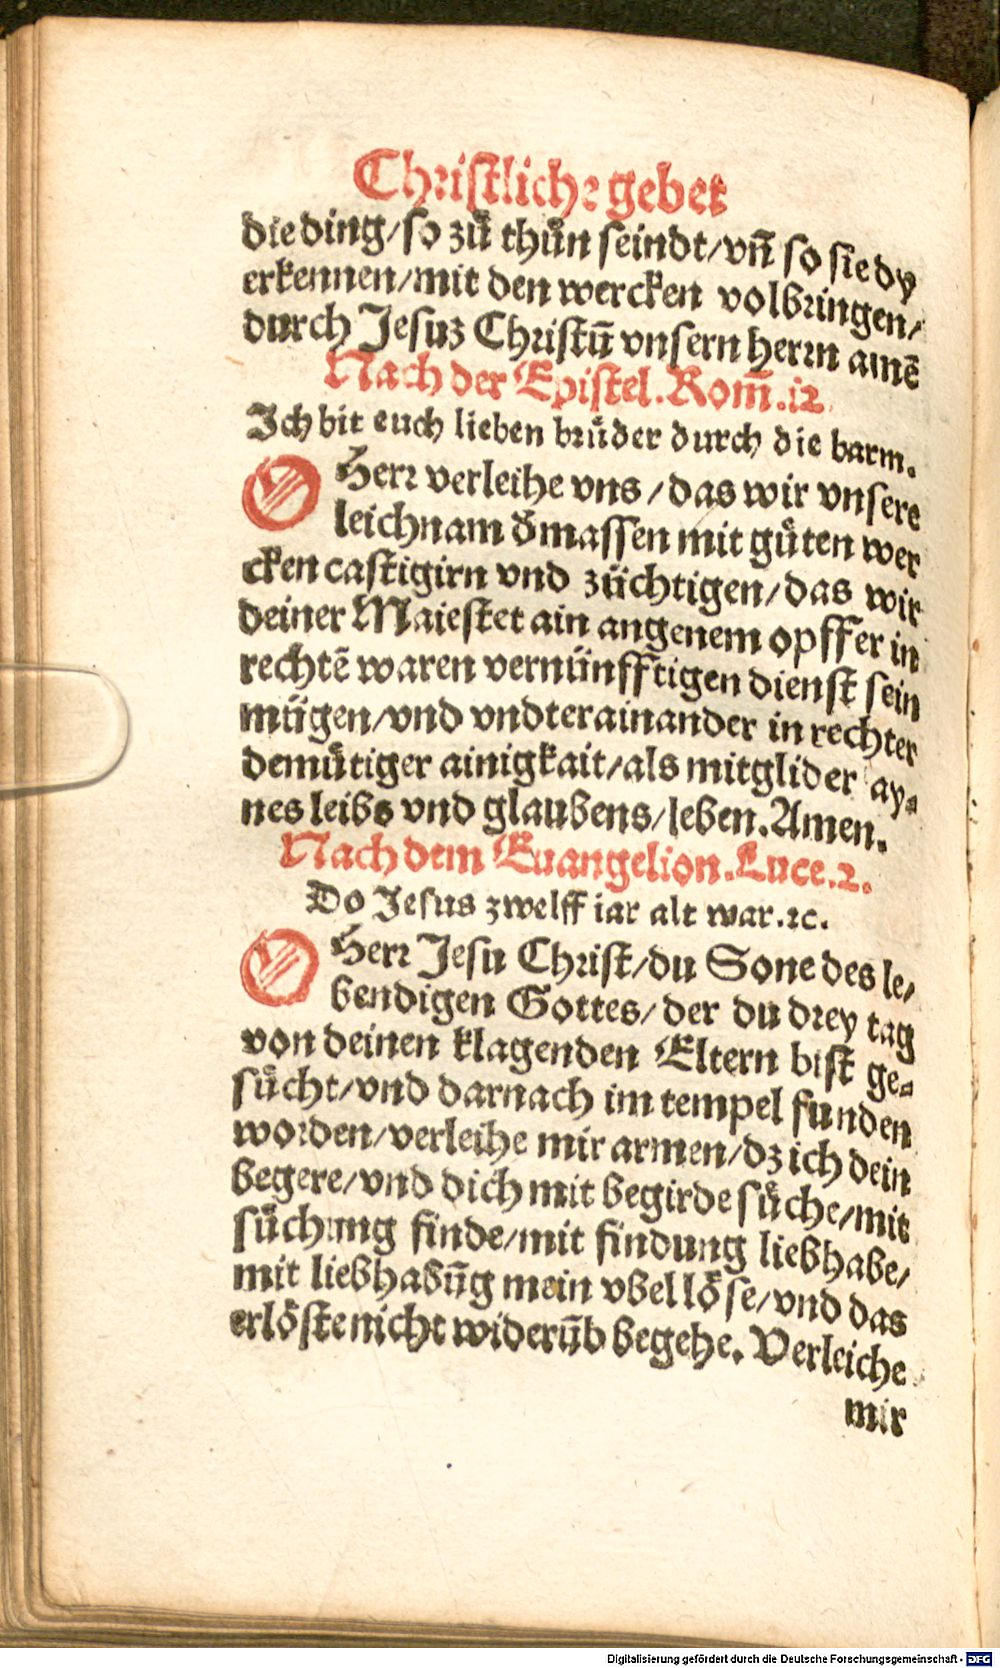 Christliche gebet
die ding/so zů thůn seindt/vñ so sie dy
erkennen/mit den wercken volbringen/
durch Jesuz Christū vnsern herrn amē
Nach der Epistel. Rom̄. 12.
Ich bit euch lieben brůder durch die barm.
O Herr verleihe vns/das wir vnsere
leichnam d̓massen mit gůten wer
cken castigirn vnd züchtigen/das wir
deiner Maiestet ain angenem opffer in
rechtē waren vernünfftigen dienst sein
mügen/vnd vndterainander in rechter
demůtiger ainigkait/als mitglider ay⸗
nes leibs vnd glaubens/leben. Amen.
Nach dem Euangelion. Luce. 2.
Do Jesus zwelff iar alt war. ꝛc.
O Herr Jesu Christ/du Sone des le/
bendigen Gottes/der du drey tag
von deinen klagenden Eltern bist ge⸗
sůcht/vnd darnach im tempel funden
worden/verleihe mir armen/dz ich dein
begere/vnd dich mit begirde sůche/mit
sůchung finde/mit findung liebhabe/
mit liebhabūg mein vbel löse/vnd das
erlöste nicht widerūb begehe. Verleiche
mir
Digitalisierung gefördert durch die Deutsche Forschungsgemeinschaft - DFG